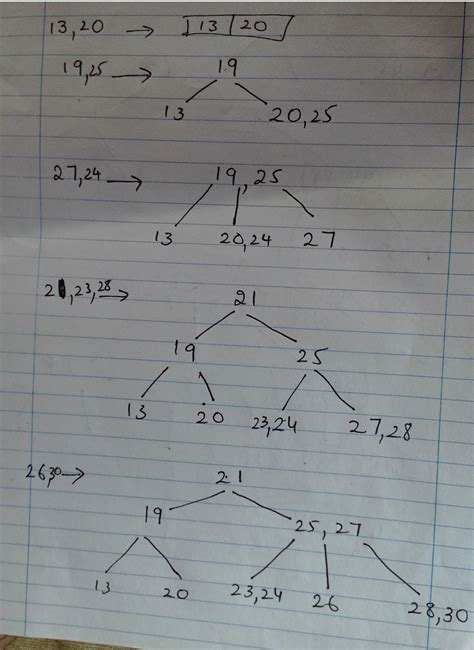 13,20 → 13 20
19,25 → 19
13 20,25
27,24 → 19,25
13 20,24 27
21,23,28 → 21
19 25
13 20 23,24 27,28
26,30 → 21
19 25,27
13 20 23,24 26 28,30